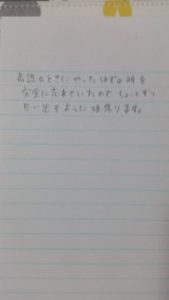 高校のときにやったはずの所を
完全に忘れていたので ちょっとずつ
思い出すように頑張ります。